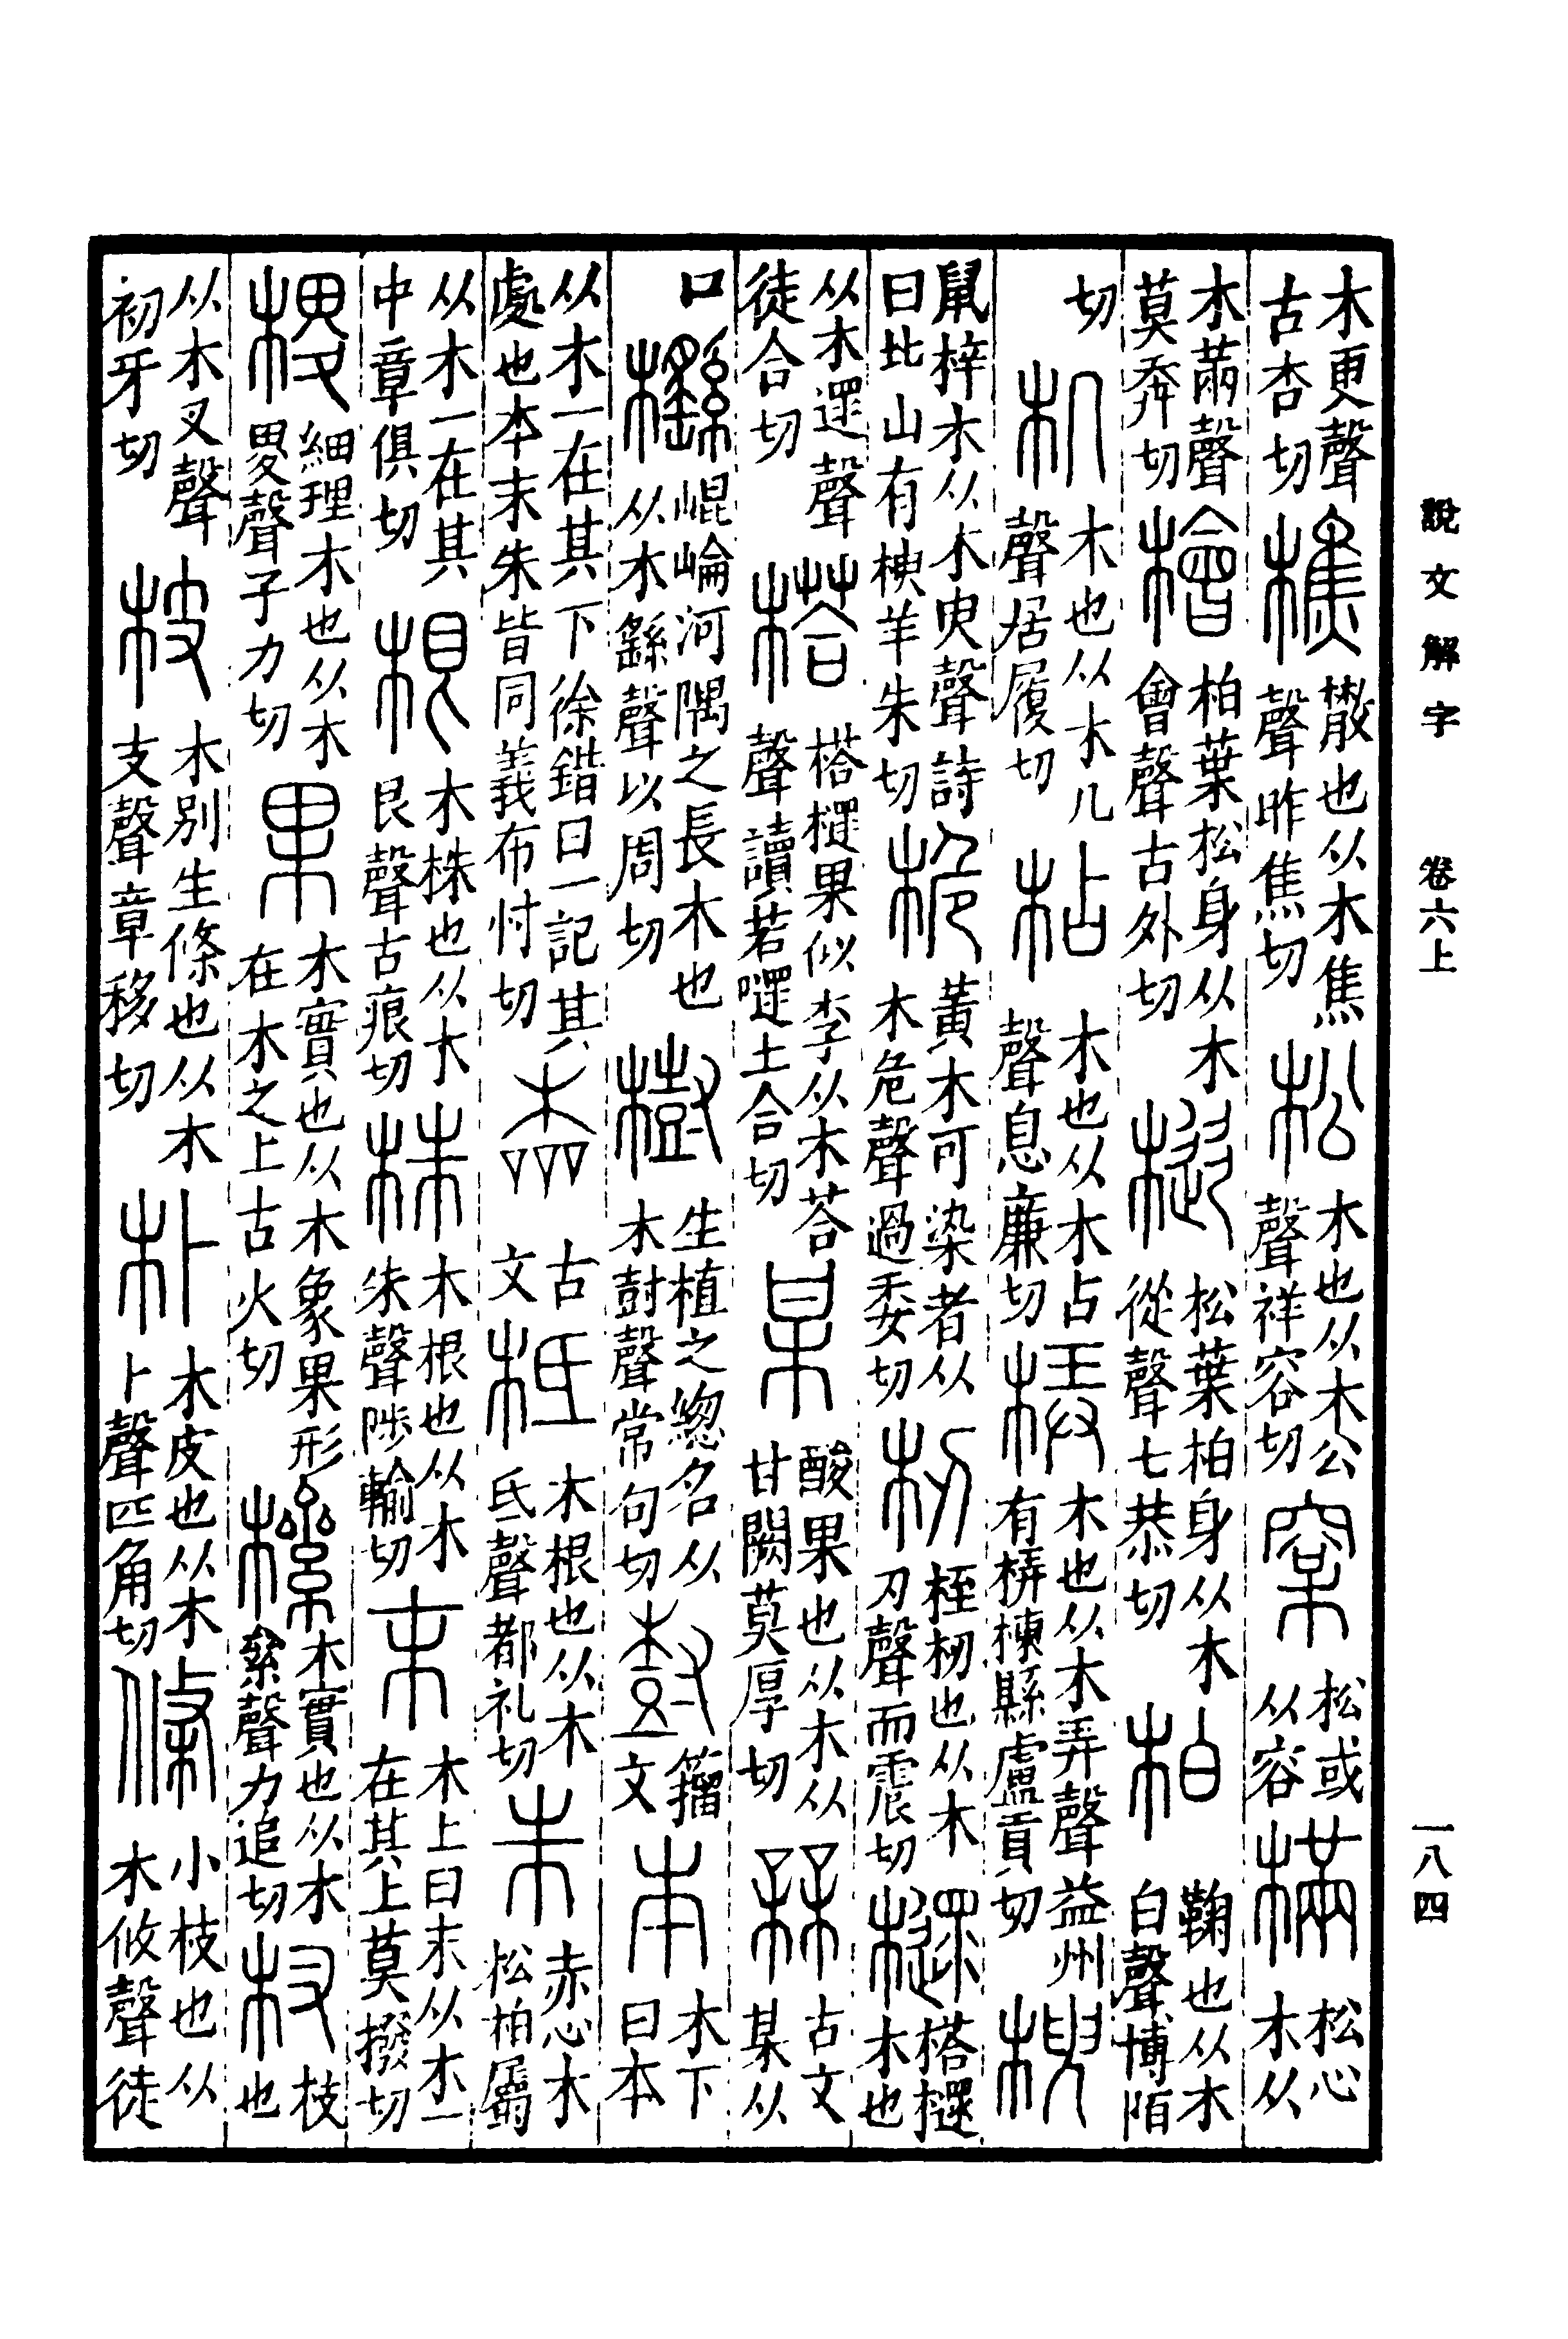 說文解字 卷六上 一八四
木更聲古杏切 樵 散也从木焦聲昨焦切 松 木也从木公聲祥容切 㮤 松或从容 樠 松心木从
木㒼聲莫奔切 檜 柏葉松身从木會聲古外切 樅 松葉柏身从木從聲七恭切 柏 鞠也从木白聲博陌
切 机 木也从木几聲居履切 枮 木也从木占聲息廉切 梇 木也从木弄聲益州有梇棟縣盧貢切 楰
鼠梓木从木臾聲詩曰北山有楰羊朱切 桅 黃木可染者从木危聲過委切 杒 桎杒也从木刃聲而震切 㯓 榙㯓木也
从木遝聲徒合切 榙 榙㯓果似李从木荅聲讀若嚃土合切 某 酸果也从木从甘闕莫厚切 槑 古文某从
口 櫾 崐崘河隅之長木也从木繇聲以周切 樹 生植之總名从木尌聲常句切 尌 籒文 本 木下曰本
从木一在其下徐鍇曰一記其處也本末朱皆同義布忖切 古文 柢 木根也从木氐聲都礼切 朱 赤心木松柏屬
从木一在其中章俱切 根 木株也从木艮聲古痕切 株 木根也从木朱聲陟輸切 末 木上曰末从木一在其上莫撥切
㮨 細理木也从木畟聲子力切 果 木實也从木象果形在木之上古火切 樏 木實也从木絫聲力追切 杈 枝也
从木叉聲初牙切 枝 木別生條也从木支聲章移切 朴 木皮也从木卜聲匹角切 條 小枝也从木攸聲徒